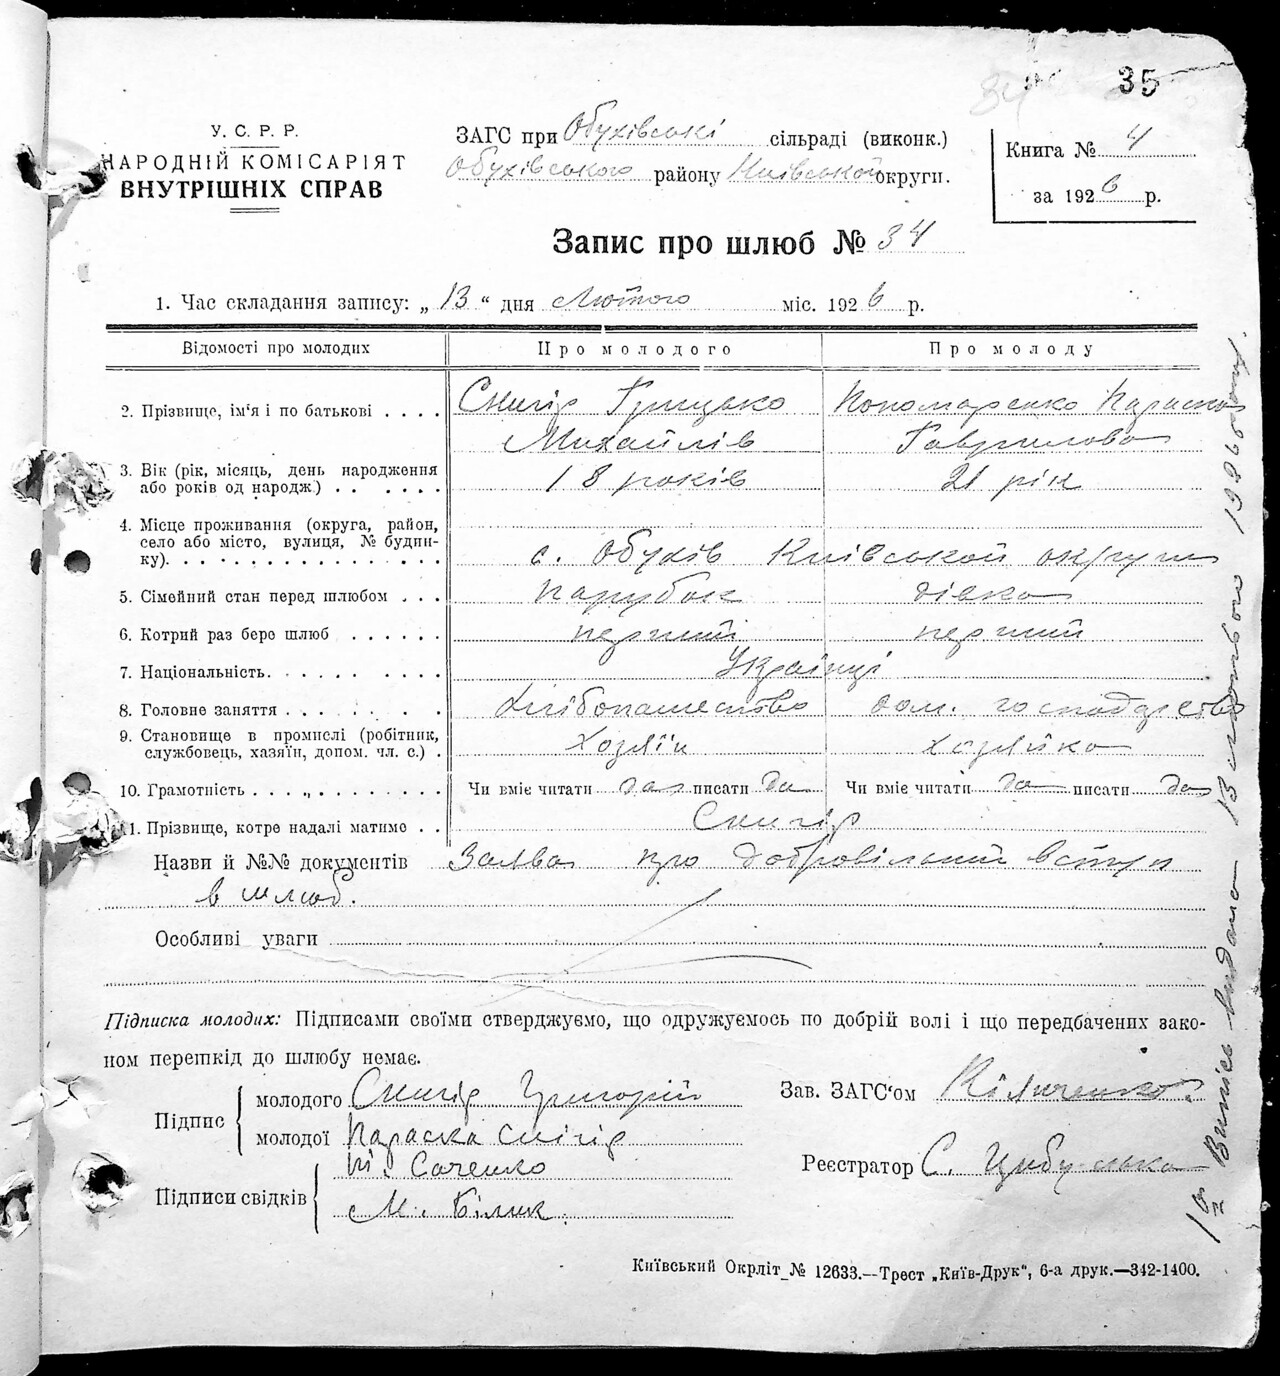 35
У. С. Р. Р.
НАРОДНІЙ КОМІСАРІЯТ
ВНУТРІШНІХ СПРАВ
ЗАГС при Обухівські сільраді (виконк.)
Обухівського району Київської округи.
Книга № 4
за 1926 р.
Запис про шлюб № 34
1. Час складання запису: „ 13 “ дня Лютого міс. 1926 р.
Відомості про молодих Про молодого Про молоду
2. Прізвище, ім'я і по батькові . . . . Снигір Грицько Пономаренко Параска
Михайлів Гаврилова
3. Вік (рік, місяць, день народження
або років од народж.) . . . . . . 18 років 21 рік
4. Місце проживання (округа, район,
село або місто, вулиця, № будин-
ку). . . . . . . . . . . . . . . с. Обухів Київської округи
5. Сімейний стан перед шлюбом . . . парубок дівка
6. Котрий раз бере шлюб . . . . . . перший перший
7. Національність. . . . . . . . . . Українці
8. Головне заняття . . . . . . . . Хлібопашество дом. господарство
9. Становище в промислі (робітник,
службовець, хазяїн, допом. чл. с.) . Хозяїн хозяйка
10. Грамотність . . . „ . . . . . . . . Чи вміє читати да писати да Чи вміє читати да писати да
11. Прізвище, котре надалі матиме . . Снигір
Назви й №№ документів Заява про добровільний вступ
в шлюб.
Особливі уваги
Підписка молодих: Підписами своїми стверджуємо, що одружуємось по добрій волі і що передбачених зако-
ном перешкід до шлюбу немає.
Підпис
молодого Снигір Григорій
молодої Параска Снігір
Зав. ЗАГС'ом
Підписи свідків
Саченко
М. Білик.
Реєстратор С. Цибулько
Київський Окрліт № 12633.—Трест „Київ-Друк“, 6-а друк.—342-1400.
Випись видана 13 лютого 1926 року.